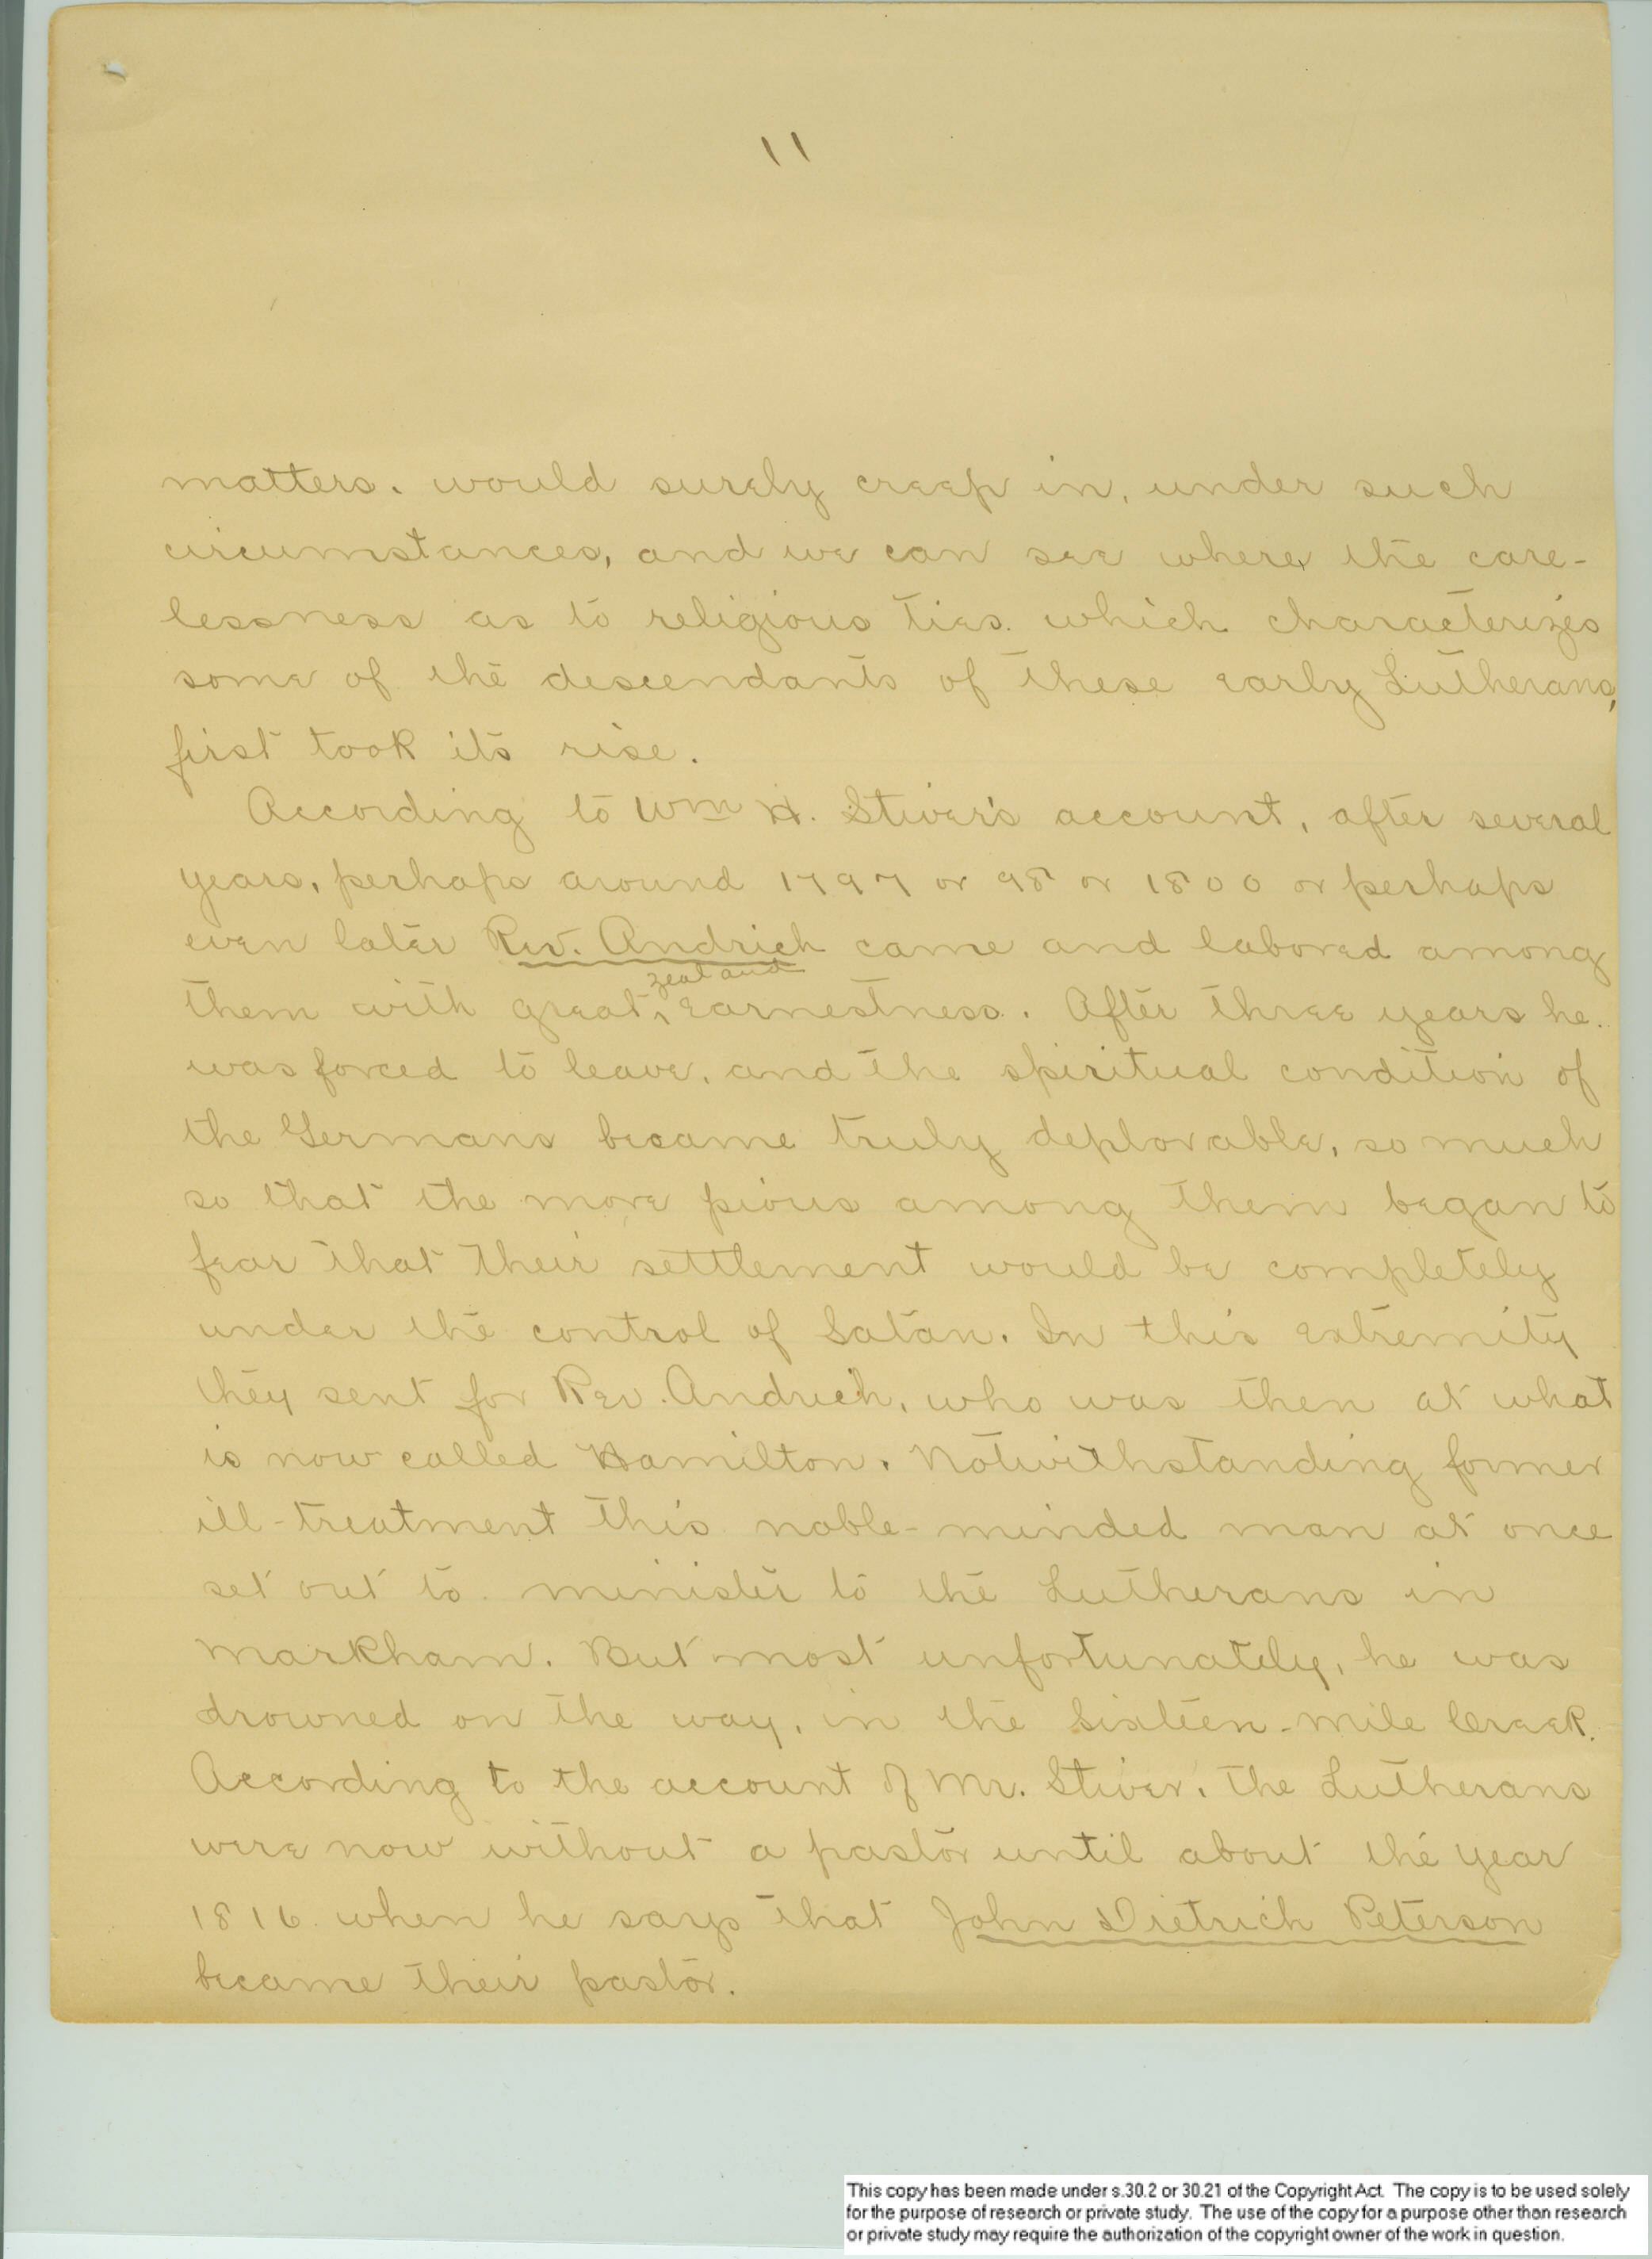 11
matters. would surely creep in, under such
circumstances, and we can see where the care-
lessness as to religious ties. which characterizes
some of the descendants of these early Lutherans,
first took its rise.
According to Wm H. Stiver's account, after several
years, perhaps around 1797 or 98 or 1800 or perhaps
even later Rev. Andrich came and labored among
zeal and
them with great, earnestness. After three years he
was forced to leave, and the spiritual condition of
the Germans became truly deplorable, so much
so that the more pious among them began to
fear that their settlement would be completely
under the control of Satan. In this extremity
they sent for Rev. Andrich, who was then at what
is now called Hamilton. Notwithstanding former
ill-treatment this noble-minded man at once
set out to minister to the Lutherans in
Markham. But most unfortunately, he was
drowned on the way, in the Sixteen-mile Creek.
According to the account of Mr. Stiver, the Lutherans
were now without a pastor until about the year
1816 when he says that John Dietrich Peterson
became their pastor.
This copy has been made under s.30.2 or 30.21 of the Copyright Act. The copy is to be used solely
for the purpose of research or private study. The use of the copy for a purpose other than research
or private study may require the authorization of the copyright owner of the work in question.